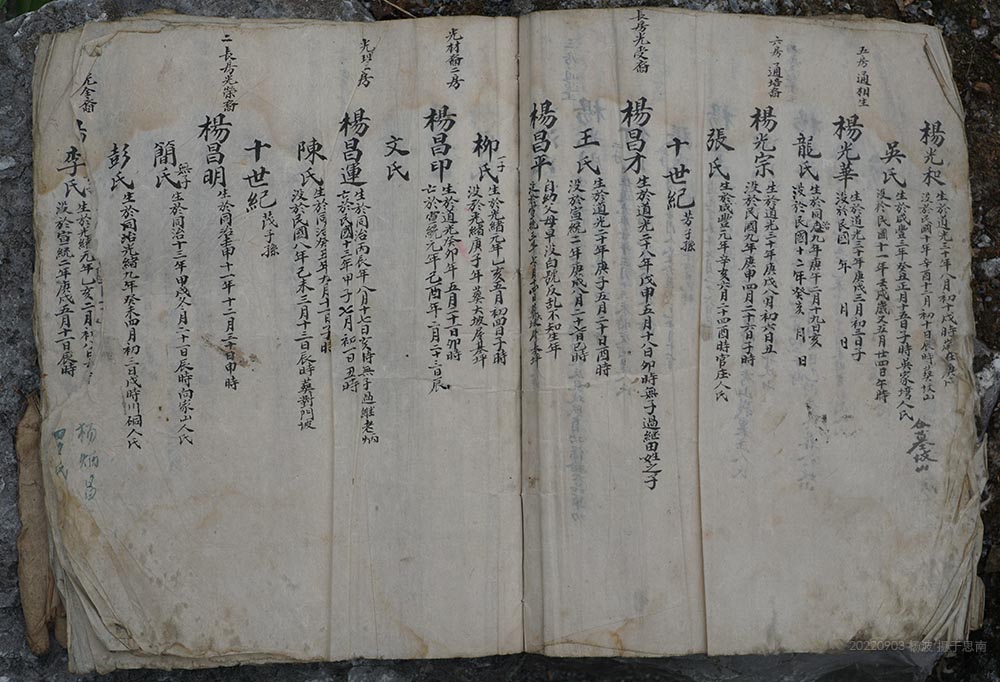 五房通相生
楊光和 生於道光三十年八月初十戌時
沒於民國十年辛酉十二月初十日辰時葬
吳氏 生於咸豐三年癸丑正月十五日子時吳家塆人氏
沒於民國十一年壬戌歲又五月廿四日午時
楊光華 生於道光三十年庚戌三月初三日子
沒於民國 年 月 日
龍氏 生於同治九年庚午二月十九日亥
沒於民國十二年癸亥 月 日
六房通培裔
楊光宗 生於道光三十年庚戌八月初六日丑
沒於民國九年庚申四月二十六日子時
張氏 生於咸豐元年辛亥六月二十四日酉時官庄人氏
十世紀
長房光受裔
楊昌才 生於道光二十八年戊申五月十八日卯時無子過繼田姓之子
王氏 生於道光二十年庚子五月二十日酉時
沒於宣統二年庚戌八月二十七日巳時
楊昌平 自幼父母早沒白號反乱不知生年
柳氏 生於光緒元年乙亥五月初四日子時
沒於光緒庚子年葬大坡
光材裔二房
楊昌印 生於道光癸卯年五月二十日卯時
亡於宣統元年己酉年二月二十三日辰
文氏
楊昌運 生於同治丙辰年八月十七日亥時無子過繼老炳
亡於民國十三年甲子七月初一日丑時
陳氏 生於同治癸丑年
沒於民國八年己未三月十三日辰時葬對門坡
十世紀
二長房光榮裔
楊昌明 生於同治壬申十一年十二月三十日申時
簡氏 無子 生於同治十三年甲戌八月二十一日辰時向家山人氏
彭氏 生於同治光緒九年癸未四月初三日戌時川硐人氏
光全裔
李氏 生於光緒元年乙亥二月初八日
沒於宣統二年庚戌五月十一日辰時
楊炳昌
20220903 杨波 拍于思南